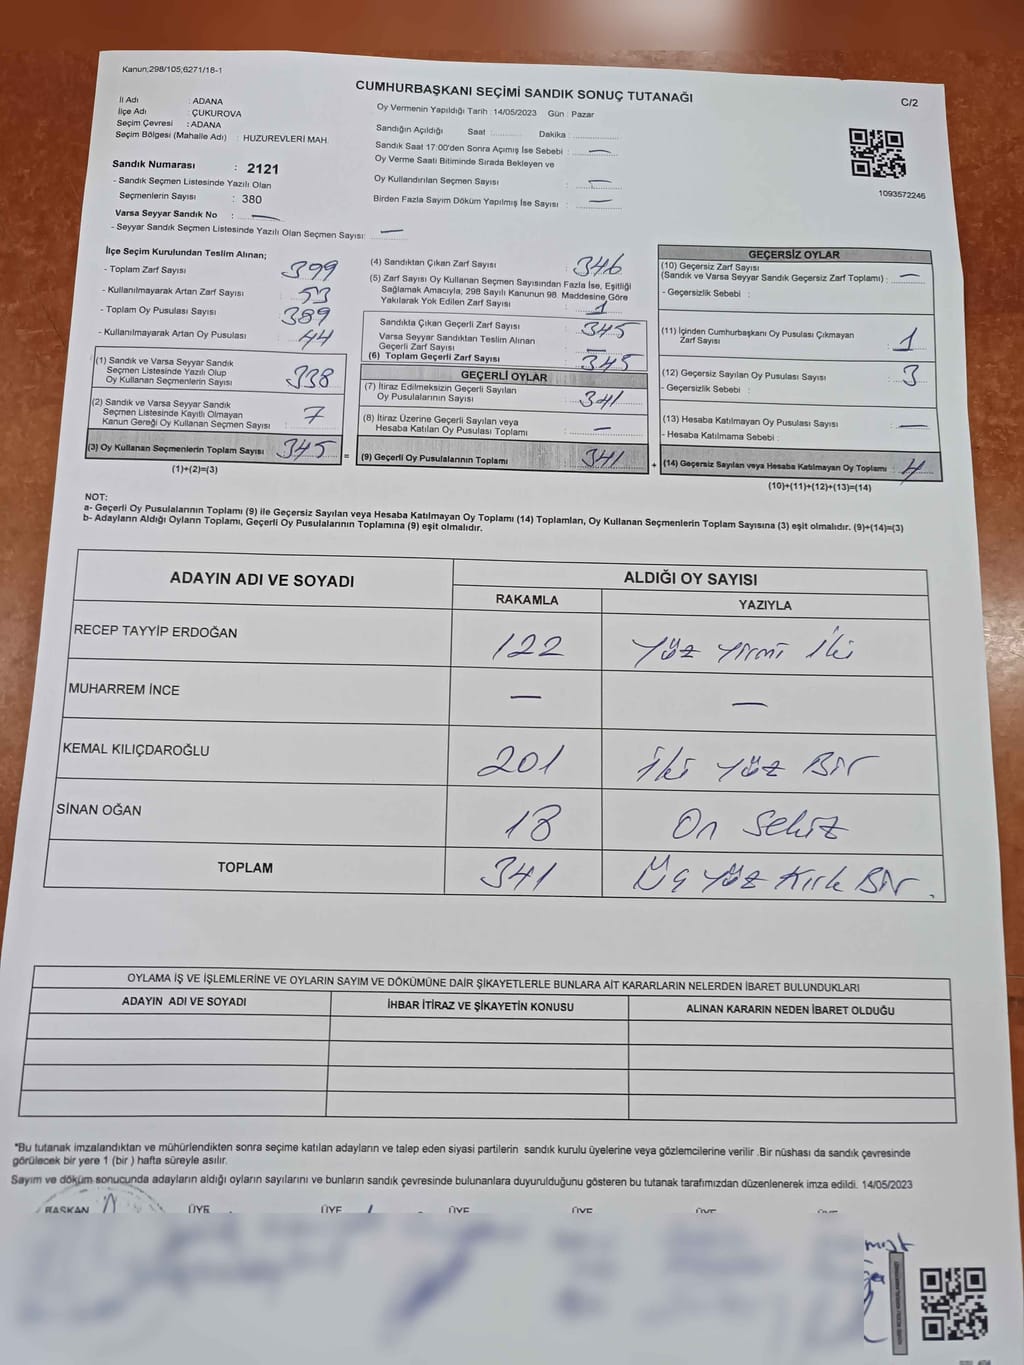 Kanun;298/105,6271/18-1
CUMHURBAŞKANI SEÇİMİ SANDIK SONUÇ TUTANAĞI
C/2
İl Adı : ADANA
İlçe Adı : ÇUKUROVA
Seçim Çevresi : ADANA
Seçim Bölgesi (Mahalle Adı) : HUZUREVLERİ MAH.
Sandık Numarası : 2121
- Sandık Seçmen Listesinde Yazılı Olan
Seçmenlerin Sayısı : 380
Varsa Seyyar Sandık No : —
- Seyyar Sandık Seçmen Listesinde Yazılı Olan Seçmen Sayısı: —
Oy Vermenin Yapıldığı Tarih : 14/05/2023 Gün : Pazar
Sandığın Açıldığı Saat :.......... Dakika :..........
Sandık Saat 17:00'den Sonra Açımış İse Sebebi : —
Oy Verme Saati Bitiminde Sırada Bekleyen ve
Oy Kullandırılan Seçmen Sayısı : —
Birden Fazla Sayım Döküm Yapılmış İse Sayısı : —
1093572246
İlçe Seçim Kurulundan Teslim Alınan;
- Toplam Zarf Sayısı : 399
- Kullanılmayarak Artan Zarf Sayısı : 53
- Toplam Oy Pusulası Sayısı : 389
- Kullanılmayarak Artan Oy Pusulası : 44
(1) Sandık ve Varsa Seyyar Sandık
Seçmen Listesinde Yazılı Olup
Oy Kullanan Seçmenlerin Sayısı : 338
(2) Sandık ve Varsa Seyyar Sandık
Seçmen Listesinde Kayıtlı Olmayan
Kanun Gereği Oy Kullanan Seçmen Sayısı : 7
(3) Oy Kullanan Seçmenlerin Toplam Sayısı : 345
(1)+(2)=(3)
(4) Sandıktan Çıkan Zarf Sayısı : 346
(5) Zarf Sayısı Oy Kullanan Seçmen Sayısından Fazla İse, Eşitliği
Sağlamak Amacıyla, 298 Sayılı Kanunun 98. Maddesine Göre
Yakılarak Yok Edilen Zarf Sayısı : 1
Sandıkta Çıkan Geçerli Zarf Sayısı : 345
Varsa Seyyar Sandıktan Teslim Alınan
Geçerli Zarf Sayısı : —
(6) Toplam Geçerli Zarf Sayısı : 345
GEÇERLİ OYLAR
(7) İtiraz Edilmeksizin Geçerli Sayılan
Oy Pusulalarının Sayısı : 341
(8) İtiraz Üzerine Geçerli Sayılan veya
Hesaba Katılan Oy Pusulası Toplamı : —
= (9) Geçerli Oy Pusulalarının Toplamı : 341
GEÇERSİZ OYLAR
(10) Geçersiz Zarf Sayısı
(Sandık ve Varsa Seyyar Sandık Geçersiz Zarf Toplamı) : —
- Geçersizlik Sebebi :
(11) İçinden Cumhurbaşkanı Oy Pusulası Çıkmayan
Zarf Sayısı : 1
(12) Geçersiz Sayılan Oy Pusulası Sayısı : 3
- Geçersizlik Sebebi :
(13) Hesaba Katılmayan Oy Pusulası Sayısı : —
- Hesaba Katılmama Sebebi :
+ (14) Geçersiz Sayılan veya Hesaba Katılmayan Oy Toplamı : 4
(10)+(11)+(12)+(13)=(14)
NOT:
a- Geçerli Oy Pusulalarının Toplamı (9) ile Geçersiz Sayılan veya Hesaba Katılmayan Oy Toplamı (14) Toplamları, Oy Kullanan Seçmenlerin Toplam Sayısına (3) eşit olmalıdır. (9)+(14)=(3)
b- Adayların Aldığı Oyların Toplamı, Geçerli Oy Pusulalarının Toplamına (9) eşit olmalıdır.
ADAYIN ADI VE SOYADI ALDIĞI OY SAYISI
RAKAMLA YAZIYLA
RECEP TAYYİP ERDOĞAN 122 Yüz Yirmi İki
MUHARREM İNCE — —
KEMAL KILIÇDAROĞLU 201 İki Yüz Bir
SİNAN OĞAN 18 On Sekiz
TOPLAM 341 Üç Yüz Kırk Bir.
OYLAMA İŞ VE İŞLEMLERİNE VE OYLARIN SAYIM VE DÖKÜMÜNE DAİR ŞİKAYETLERLE BUNLARA AİT KARARLARIN NELERDEN İBARET BULUNDUKLARI
ADAYIN ADI VE SOYADI İHBAR İTİRAZ VE ŞİKAYETİN KONUSU ALINAN KARARIN NEDEN İBARET OLDUĞU
*Bu tutanak imzalandıktan ve mühürlendikten sonra seçime katılan adayların ve talep eden siyasi partilerin sandık kurulu üyelerine veya gözlemcilerine verilir .Bir nüshası da sandık çevresinde
görülecek bir yere 1 (bir ) hafta süreyle asılır.
Sayım ve döküm sonucunda adayların aldığı oyların sayılarını ve bunların sandık çevresinde bulunanlara duyurulduğunu gösteren bu tutanak tarafımızdan düzenlenerek imza edildi. 14/05/2023
BAŞKAN ÜYE ÜYE ÜYE ÜYE ÜYE ÜYE